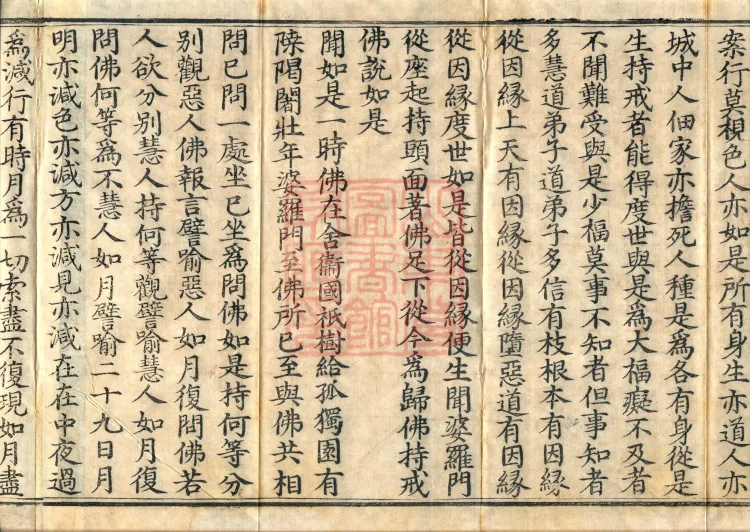 案行莫視色人亦如是所有身生亦道人亦
城中人佃家亦擔死人種是為各有身從是
生持戒者能得度世與是為大福癡不及者
不聞難受與是少福莫事不知者但事知者
多慧道弟子道弟子多信有枝根本有因緣
從因緣上天有因緣從因緣墮惡道有因緣
從因緣度世如是皆從因緣便生聞婆羅門
從座起持頭面著佛足下從今為歸佛持戒
佛說如是
聞如是一時佛在舍衞國祇樹給孤獨園有
陎陽闍壯年婆羅門至佛所已至與佛共相
問已問一處坐已坐為問佛如是持何等分
別觀惡人佛報言譬喻惡人如月復問佛若
人欲分別慧人持何等觀譬喻慧人如月復
問佛何等為不慧人如月譬喻二十九日月
明亦減色亦減方亦減見亦減在在中夜過
為減行有時月為一切索盡不復現如月盡